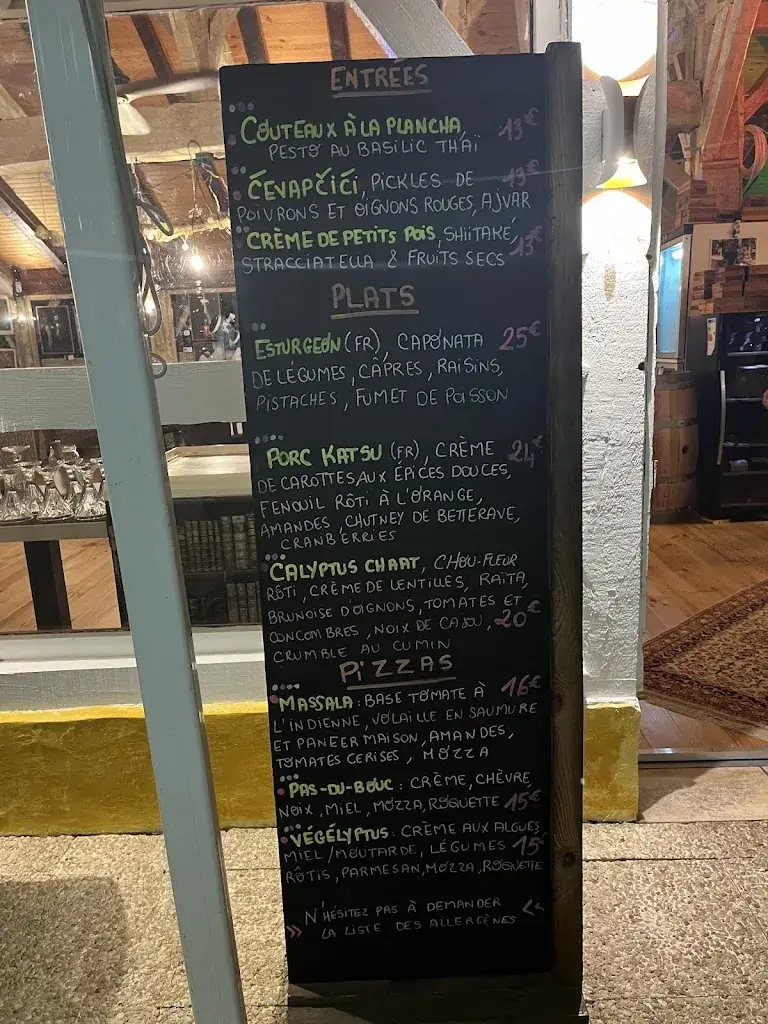 ENTRÉES
COUTEAUX À LA PLANCHA, 13€
PESTO AU BASILIC THAÏ
ČEVAPČIĆI, PICKLES DE 13€
POIVRONS ET OIGNONS ROUGES, AJVAR
CRÈME DE PETITS POIS, SHIITAKÉ, 13€
STRACCIATELLA & FRUITS SECS
PLATS
ESTURGEON (FR), CAPONATA 25€
DE LÉGUMES, CÂPRES, RAISINS,
PISTACHES, FUMET DE POISSON
PORC KATSU (FR), CRÈME 24€
DE CAROTTES AUX ÉPICES DOUCES,
FENOUIL RÔTI À L'ORANGE,
AMANDES, CHUTNEY DE BETTERAVE,
CRANBERRIES
CALYPTUS CHAAT, CHOU-FLEUR
RÔTI, CRÈME DE LENTILLES, RAÏTA,
BRUNOISE D'OIGNONS, TOMATES ET
CONCOMBRES, NOIX DE CAJOU, 20€
CRUMBLE AU CUMIN
PIZZAS
MASSALA : BASE TOMATE À 16€
L'INDIENNE, VOLAILLE EN SAUMURE
ET PANEER MAISON, AMANDES,
TOMATES CERISES, MOZZA
PAS-DU-BOUC : CRÈME, CHÈVRE,
NOIX, MIEL, MOZZA, ROQUETTE 15€
VÉGÉLYPTUS : CRÈME AUX ALGUES
MIEL/MOUTARDE, LÉGUMES 15€
RÔTIS, PARMESAN, MOZZA, ROQUETTE
N'HÉSITEZ PAS À DEMANDER <<
>> LA LISTE DES ALLERGÈNES